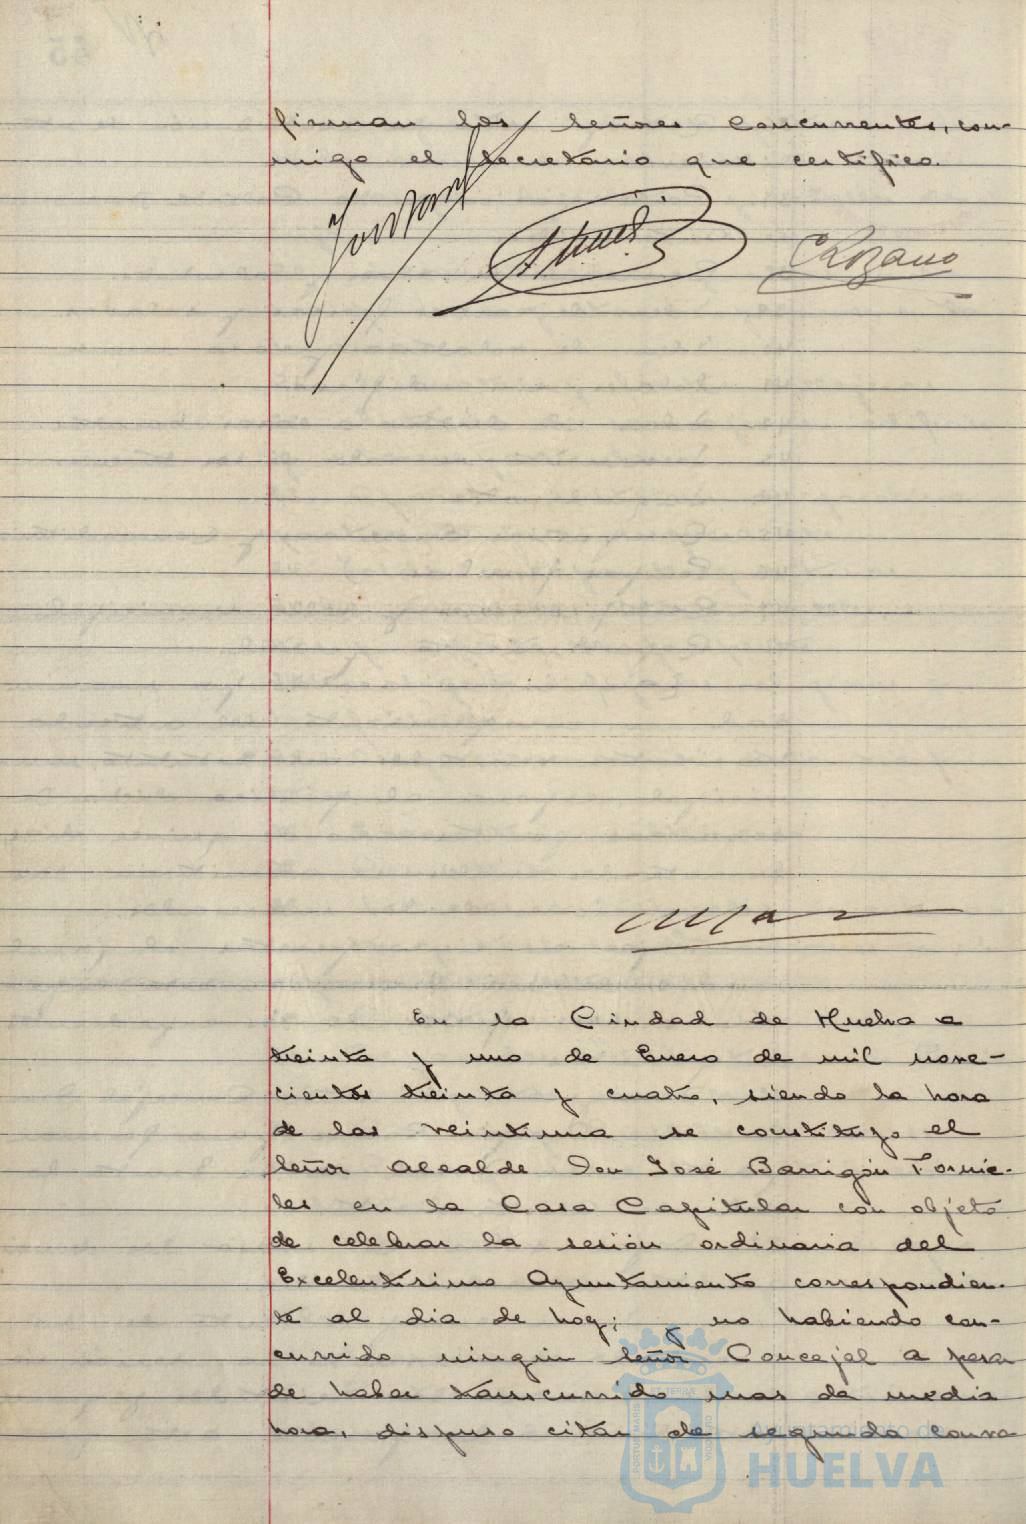 firman los señores concurrentes, con-
migo el Secretario que certifico.
CLozano
En la Ciudad de Huelva a
treinta y uno de Enero de mil nove-
cientos treinta y cuatro, siendo la hora
de las veintiuna se constituyo el
Señor Alcalde Don José Barrigón Fornie-
les en la Casa Capitular con objeto
de celebrar la sesión ordinaria del
Excelentisimo Ayuntamiento correspondien-
te al dia de hoy; y no habiendo con-
currido ningún Señor Concejal a pesar
de haber transcurrido mas de media
hora, dispuso citar de segunda convo
Ayuntamiento de
HUELVA